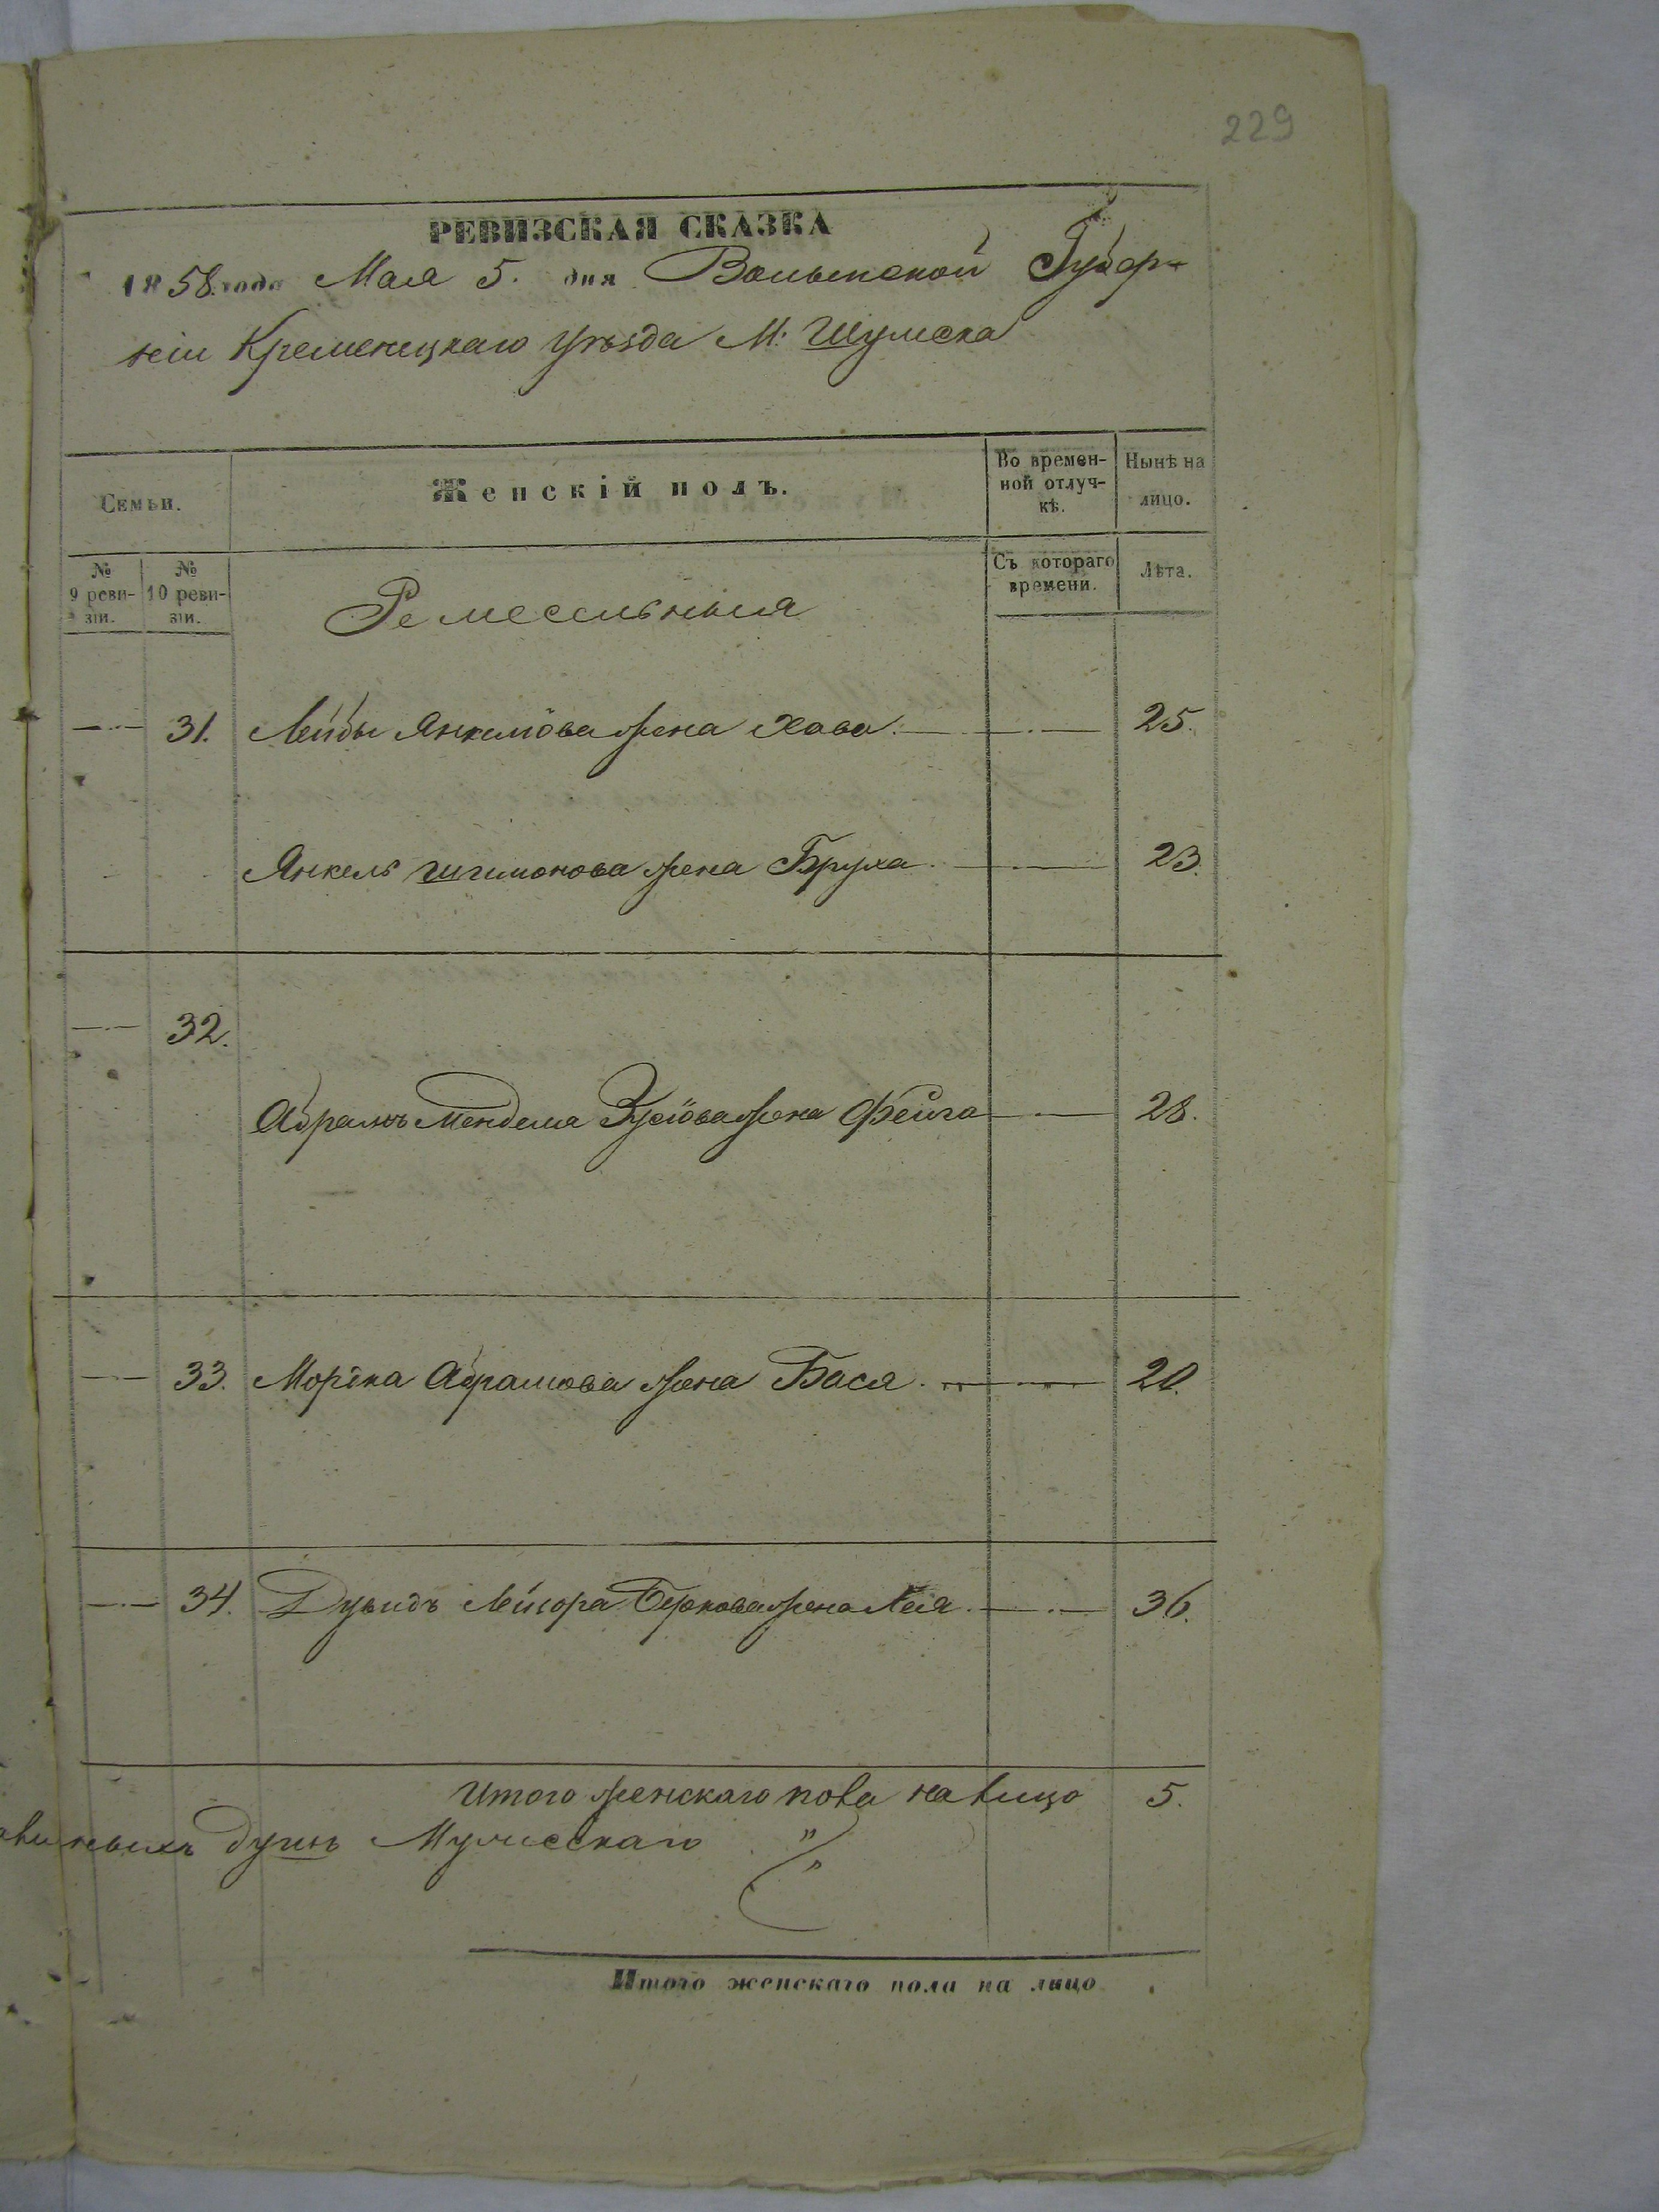 229
РЕВИЗСКАЯ СКАЗКА
1858 года Мая 5. дня Волынской Губер-
ніи Кременецкаго Уѣзда М: Шумска
Семьи.
Женскій полъ.
Во времен-
ной отлуч-
кѣ.
Нынѣ на
лицо.
№
9 реви-
зіи.
№
10 реви-
зіи.
Съ котораго
времени.
Лѣта.
Ремесльныя
31. Лейбы Янкелова жена Хава. 25.
Янкель Шимонова жена Бруха. 23.
32.
Абрамъ Мендела Зусіова жена Фейга 28.
33. Моріка Абрамова жена Бася. 20.
34. Дувидъ Лейзора Беркова жена Лея. 36.
Итого женскаго пола на лицо 5.
душъ Мужескаго "
"
Итого женскаго пола на лицо